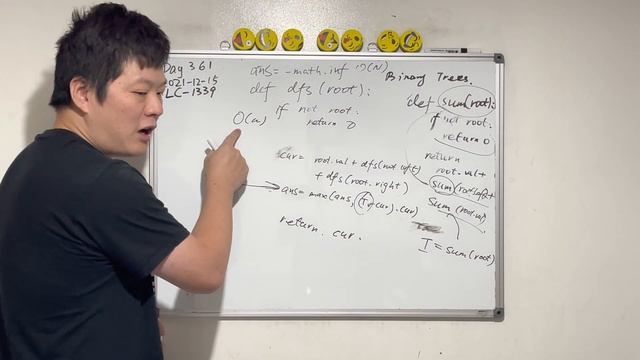 Day 361
2021-12-15
LC-1339
ans = -math.inf
O(N)
Binary Trees.
def dfs (root):
if not root:
return 0
O(n)
cur = root.val + dfs(root.left)
+ dfs(root.right)
ans = max(ans, (T-cur).cur)
return cur.
def sum(root):
if not root:
return 0
return
root.val +
sum(root.left) +
sum(root.
T = sum(root)